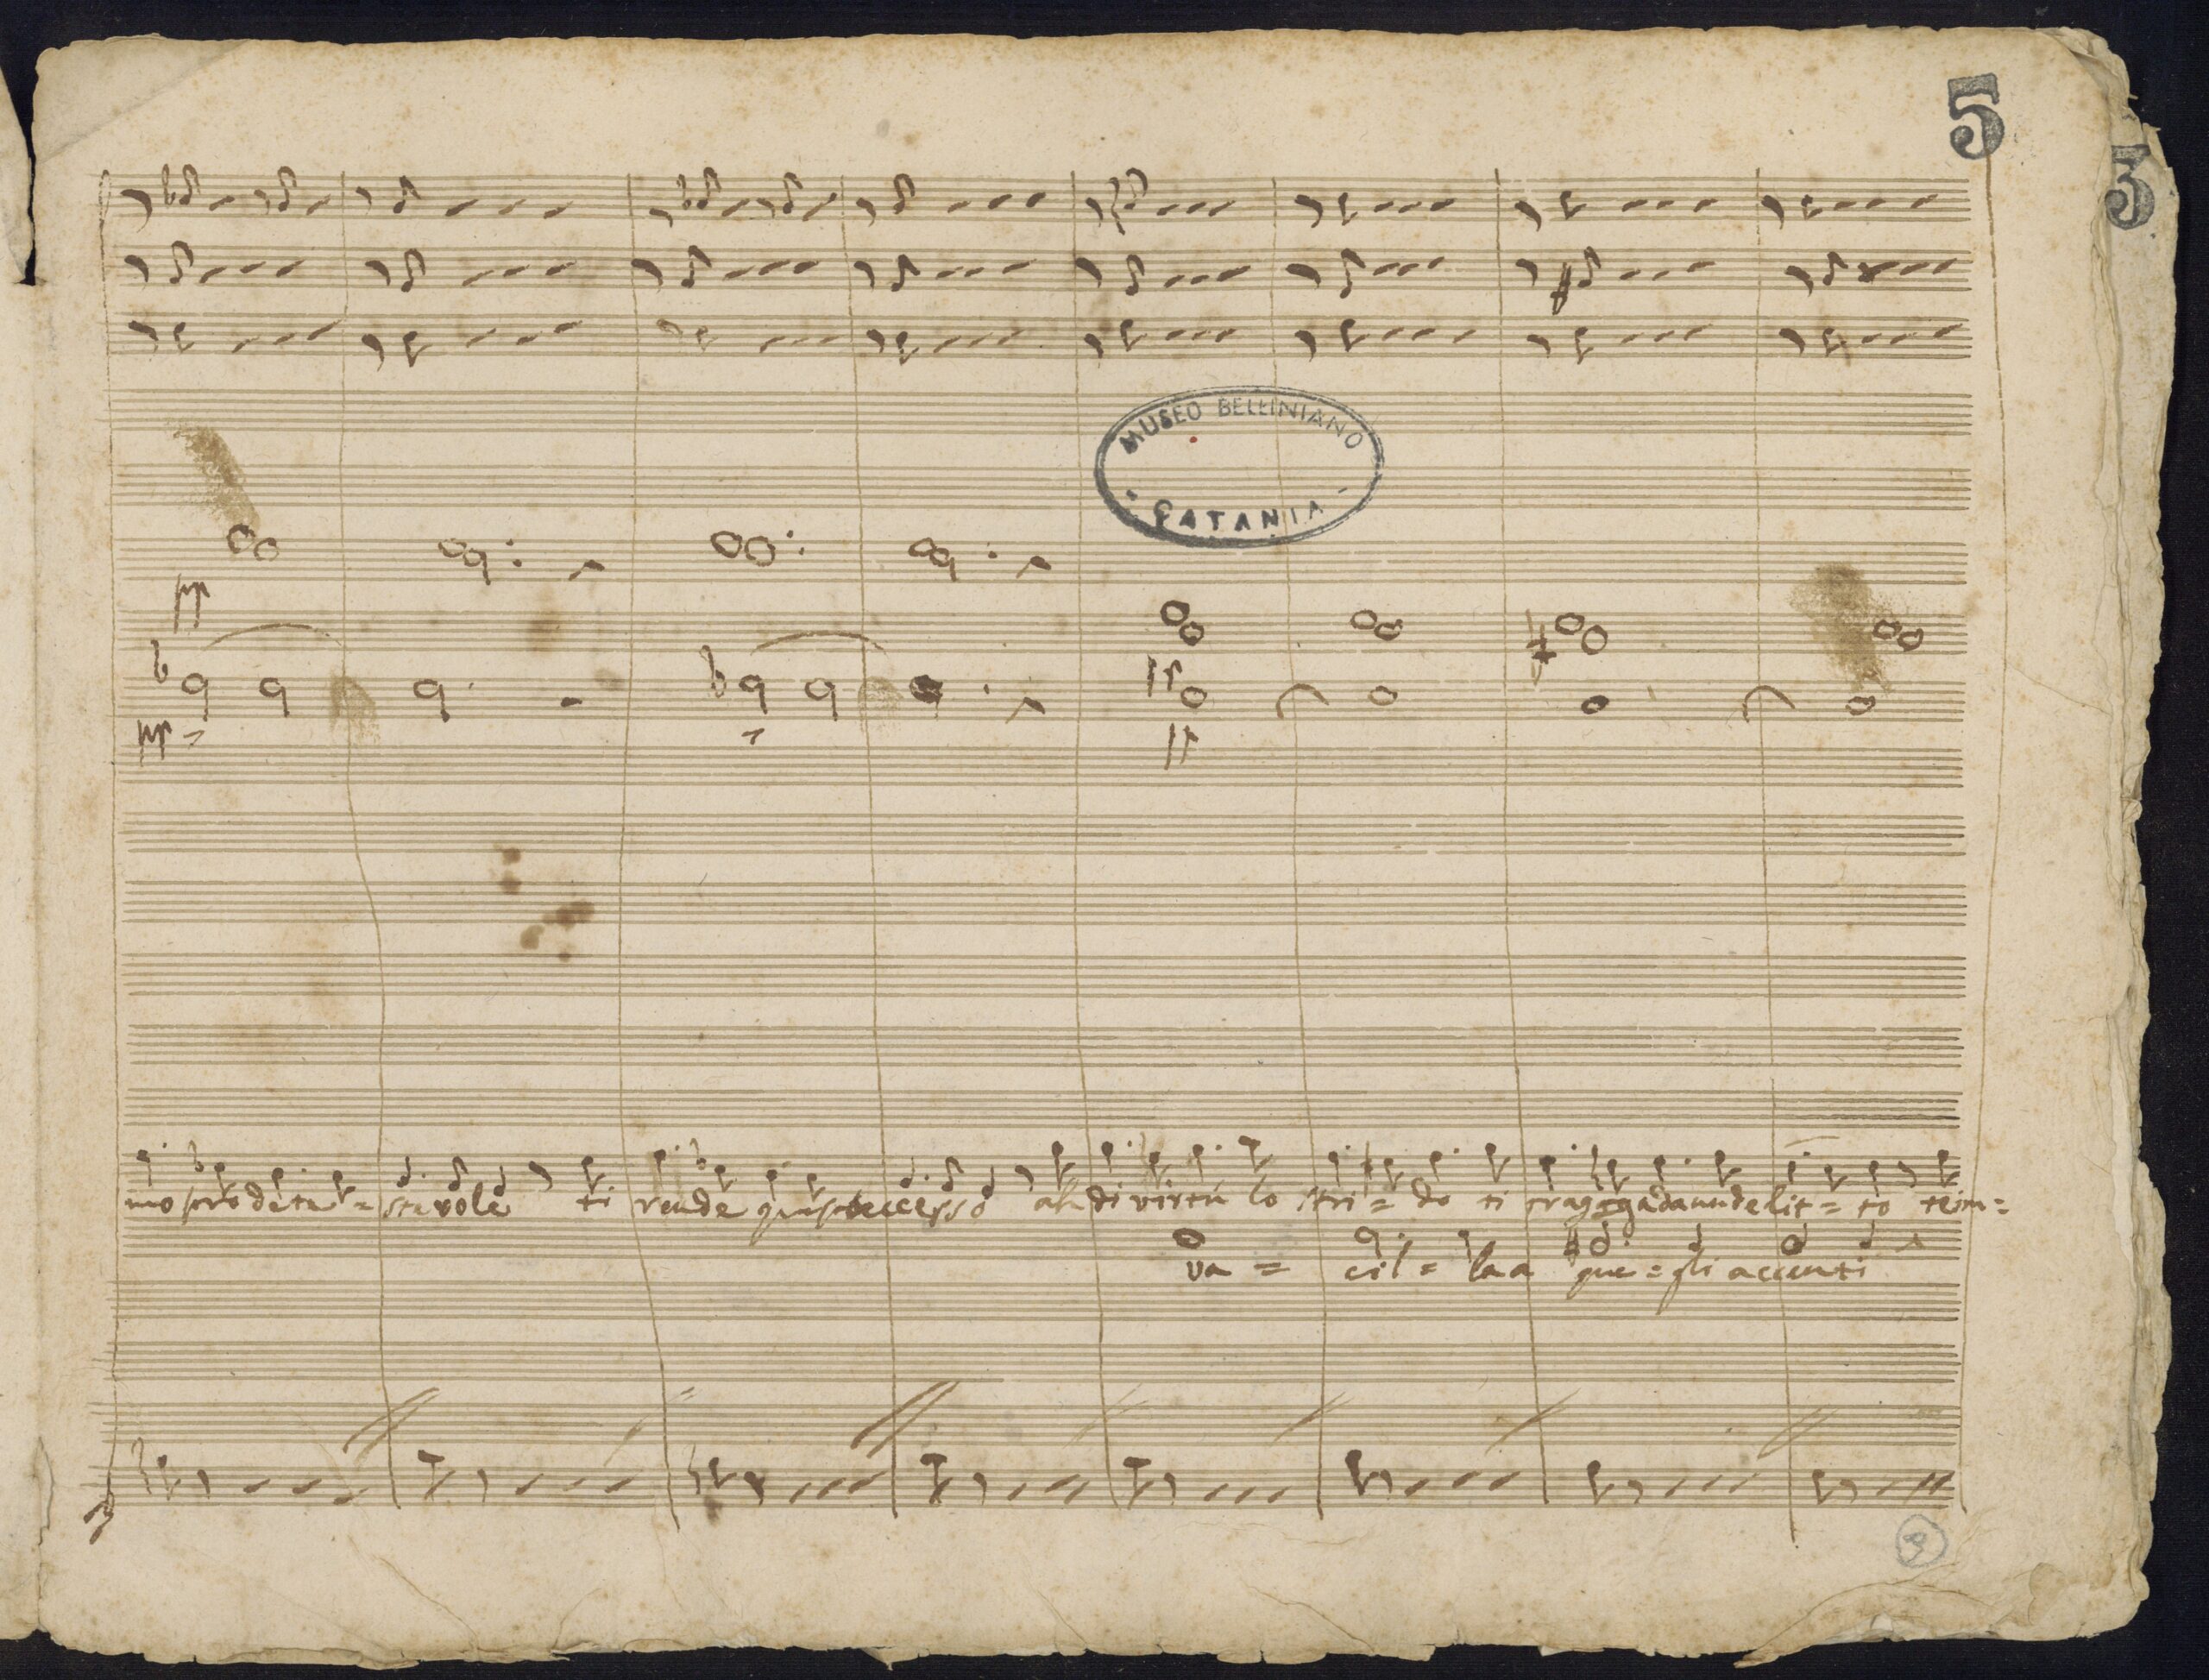 5
3
MUSEO BELLINIANO
CATANIA
pp
pp
pp
pp
mostro dete = stevole ti rende quest'eccesso ah di virtù lo stri = do ti fragga da un delit = to teim =
va = cil = la a que = gli accenti
9